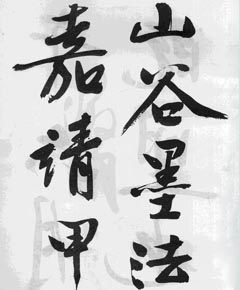 山谷墨法
嘉靖甲